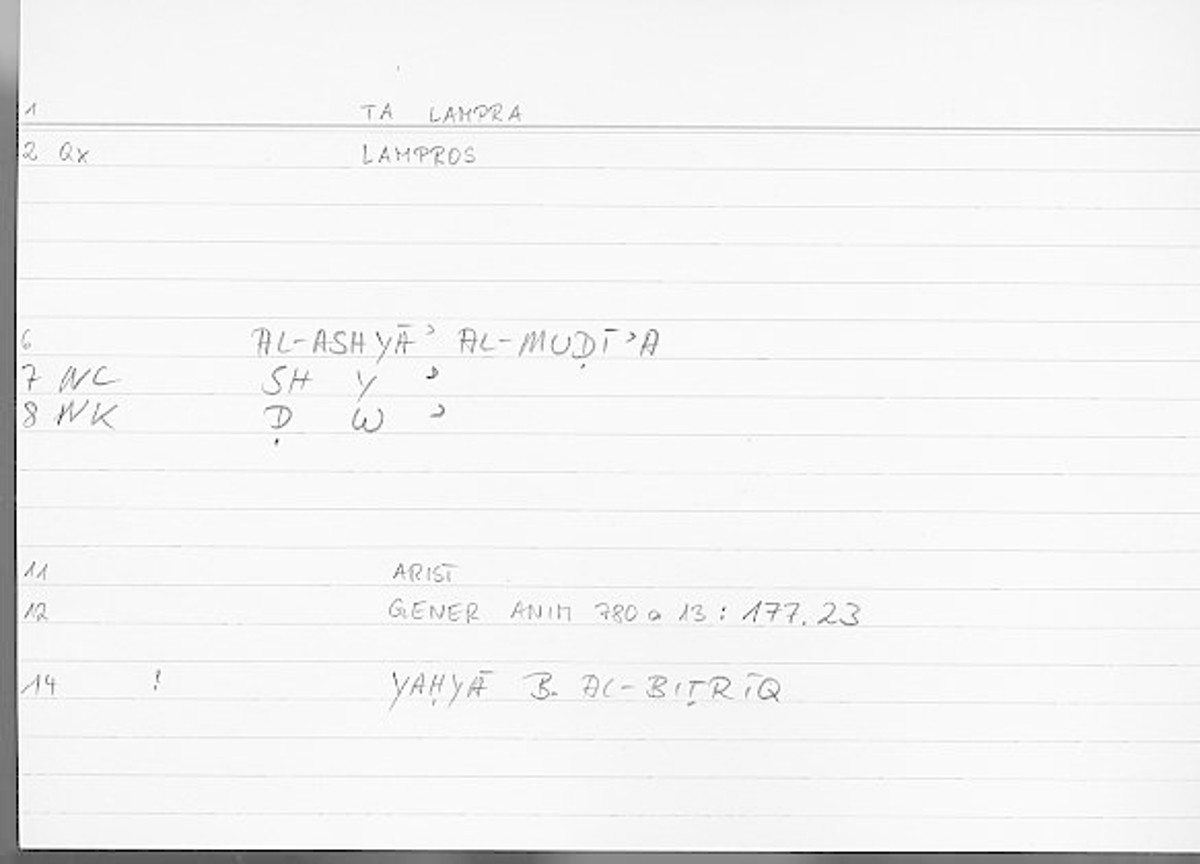 1 TA LAMPRA
2 Qx LAMPROS
6 AL-ASHYĀʾ AL-MUḌĪʾA
7 NC SH Y ʾ
8 NK Ḍ W ʾ
11 ARIST
12 GENER ANIM 780 a 13 : 177.23
14 ! YAḤYĀ B. AL-BIṬRĪQ